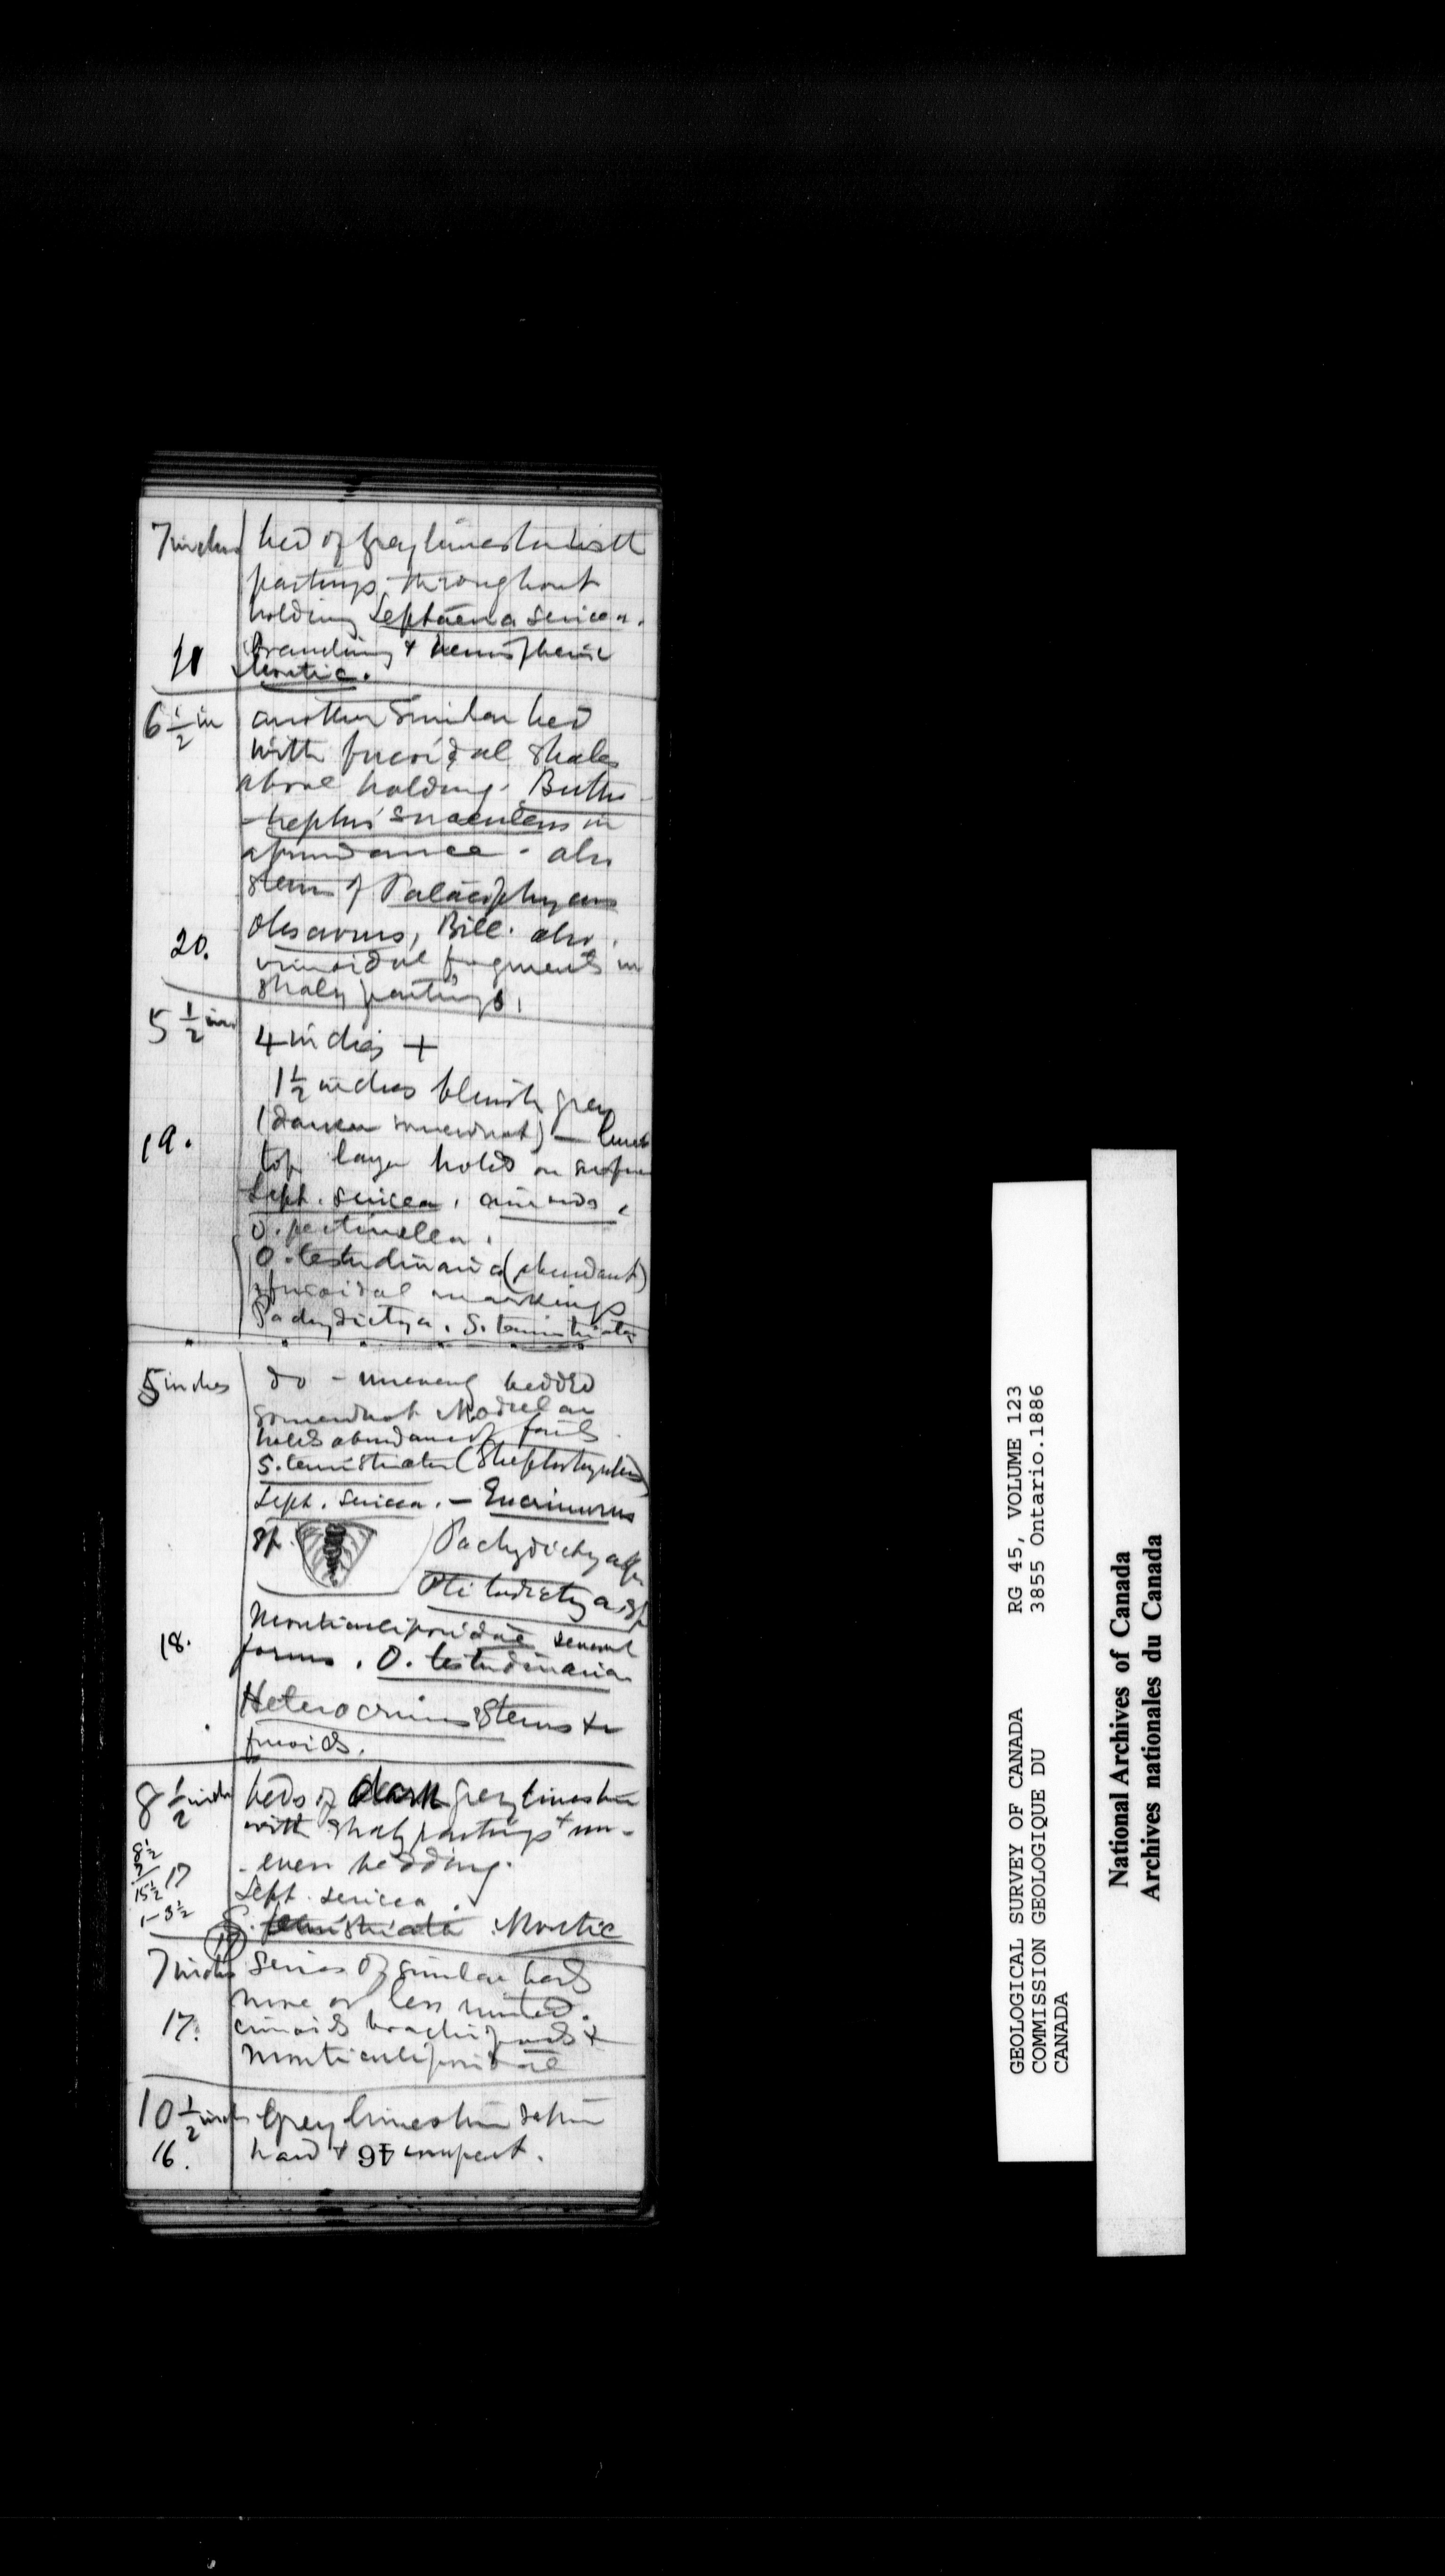 7 inches bed of grey limestone with
partings throughout
holding Leptaena sericea.
branching & hemispheric
Montic.
6 1/2 in another similar bed
with fucoidal shales
above holding Butho-
-trephis succulens in
abundance - also
stems of Palaeophycus
obscurus, Bill. also
20. crinoidal fragments in
shaly partings.
5 1/2 in 4 inches +
1 1/2 inches bluish grey
(darker somewhat) —
19. top layer holds on surface
Lept. sericea, crinoids,
O. pectinella.
O. testudinaria (abundant)
& fucoidal markings
Pachydictya. S. tenuistriata
5 inches do - unevenly bedded
somewhat Nodular
holds abundance of fossils.
S. tenuistriata (Streptorhynchus)
Lept. sericea. - Encrinurus
sp. Pachydictya
Ptilodictya sp
Monticuliporidae several
18. forms. O. testudinaria
Heterocrinus stems &
fucoids.
8 1/2 inches beds of dark grey limestone
with shaly partings & un-
-even bedding.
8 1/2
7
15 1/2
17
1-3 1/2
Lept. sericea.
S. tenuistriata Montic
17
7 inches series of similar beds
more or less united.
17. crinoids brachiopods &
monticuliporidae
10 1/2 inches Grey limestone
16. hard & compact.
46
GEOLOGICAL SURVEY OF CANADA RG 45, VOLUME 123
COMMISSION GEOLOGIQUE DU 3855 Ontario.1886
CANADA
National Archives of Canada
Archives nationales du Canada